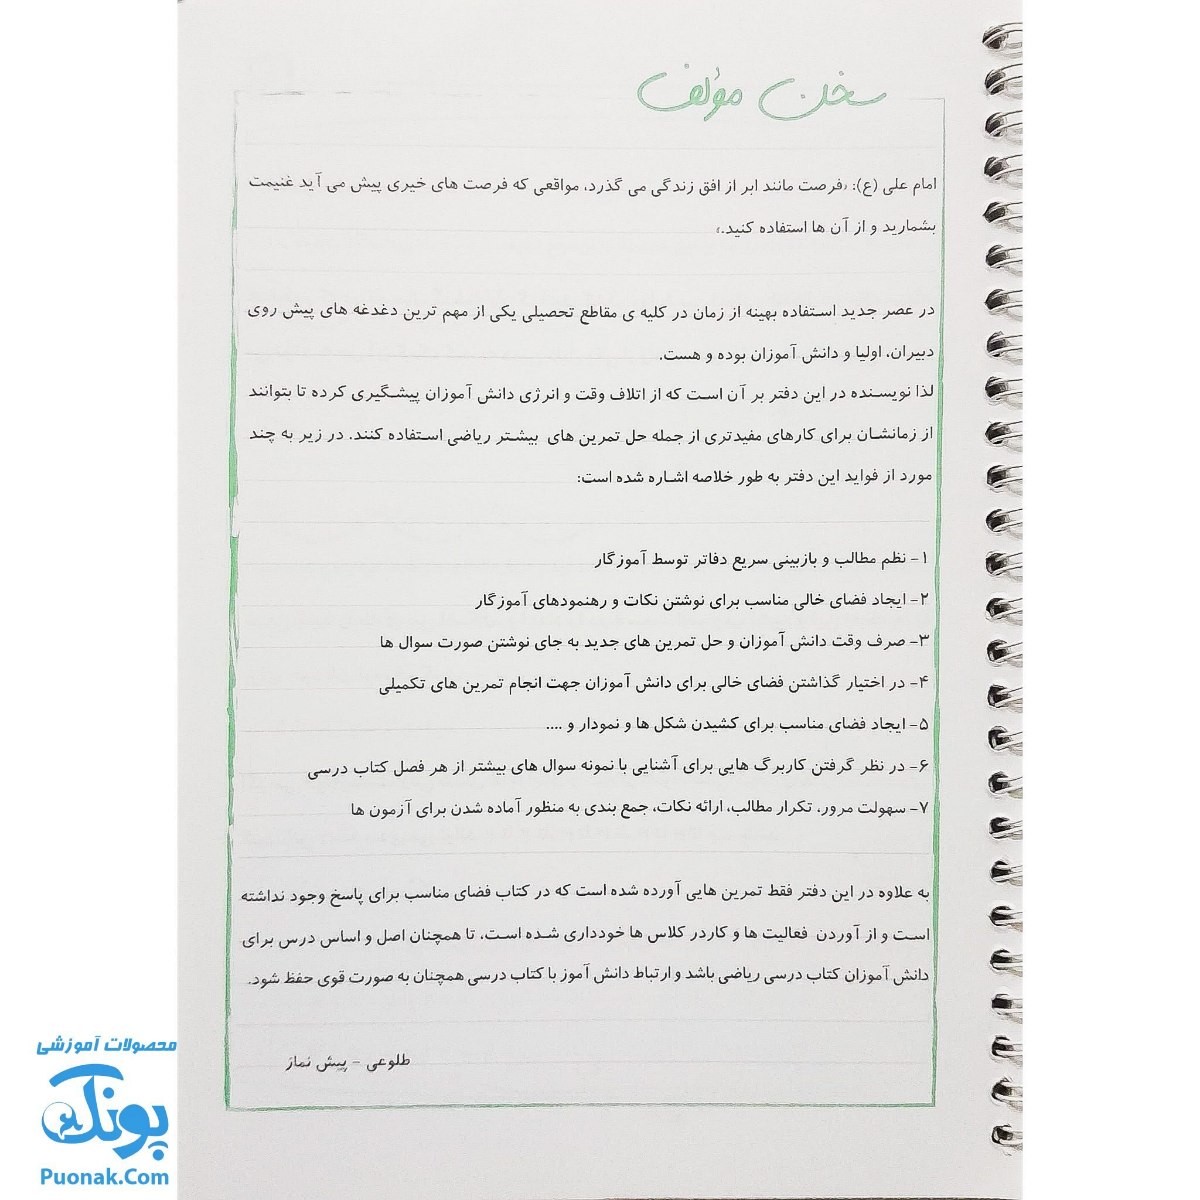 سخن مؤلف
امام علی (ع): «فرصت مانند ابر از افق زندگی می گذرد، مواقعی که فرصت های خیری پیش می آید غنیمت
بشمارید و از آن ها استفاده کنید.»
در عصر جدید استفاده بهینه از زمان در کلیه ی مقاطع تحصیلی یکی از مهم ترین دغدغه های پیش روی
دبیران، اولیا و دانش آموزان بوده و هست.
لذا نویسنده در این دفتر بر آن است که از اتلاف وقت و انرژی دانش آموزان پیشگیری کرده تا بتوانند
از زمانشان برای کارهای مفیدتری از جمله حل تمرین های بیشتر ریاضی استفاده کنند. در زیر به چند
مورد از فواید این دفتر به طور خلاصه اشاره شده است:
۱- نظم مطالب و بازبینی سریع دفاتر توسط آموزگار
۲- ایجاد فضای خالی مناسب برای نوشتن نکات و رهنمودهای آموزگار
۳- صرف وقت دانش آموزان و حل تمرین های جدید به جای نوشتن صورت سوال ها
۴- در اختیار گذاشتن فضای خالی برای دانش آموزان جهت انجام تمرین های تکمیلی
۵- ایجاد فضای مناسب برای کشیدن شکل ها و نمودار و ....
۶- در نظر گرفتن کاربرگ هایی برای آشنایی با نمونه سوال های بیشتر از هر فصل کتاب درسی
۷- سهولت مرور، تکرار مطالب، ارائه نکات، جمع بندی به منظور آماده شدن برای آزمون ها
به علاوه در این دفتر فقط تمرین هایی آورده شده است که در کتاب فضای مناسب برای پاسخ وجود نداشته
است و از آوردن فعالیت ها و کاردر کلاس ها خودداری شده است، تا همچنان اصل و اساس درس برای
دانش آموزان کتاب درسی ریاضی باشد و ارتباط دانش آموز با کتاب درسی همچنان به صورت قوی حفظ شود.
طلوعی - پیش نماز
محصولات آموزشی
پونک
Puonak.Com